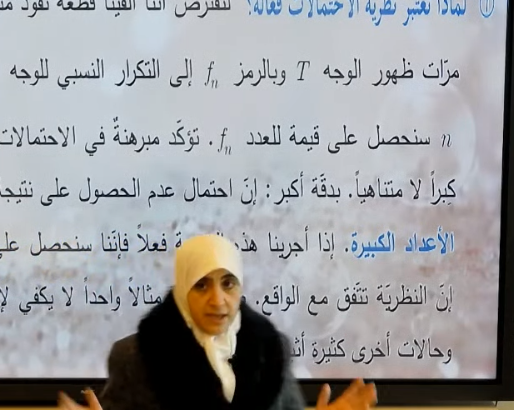 لماذا تعتبر نظرية الاحتمالات فعّالة؟ لنفترض أننا ألقينا قطعة نقود
مرّات ظهور الوجه T وبالرمز fₙ إلى التكرار النسبي للوجه
n سنحصل على قيمة للعدد fₙ. تؤكّد مبرهنةٌ في الاحتمالات
كبراً لا متناهياً. بدقّة أكبر: إنّ احتمال عدم الحصول على نتيجة
الأعداد الكبيرة. إذا أجرينا فعلاً فإنّنا سنحصل
إنّ النظريّة تتّفق مع الواقع. مثالاً واحداً لا يكفي
وحالات أخرى كثيرة